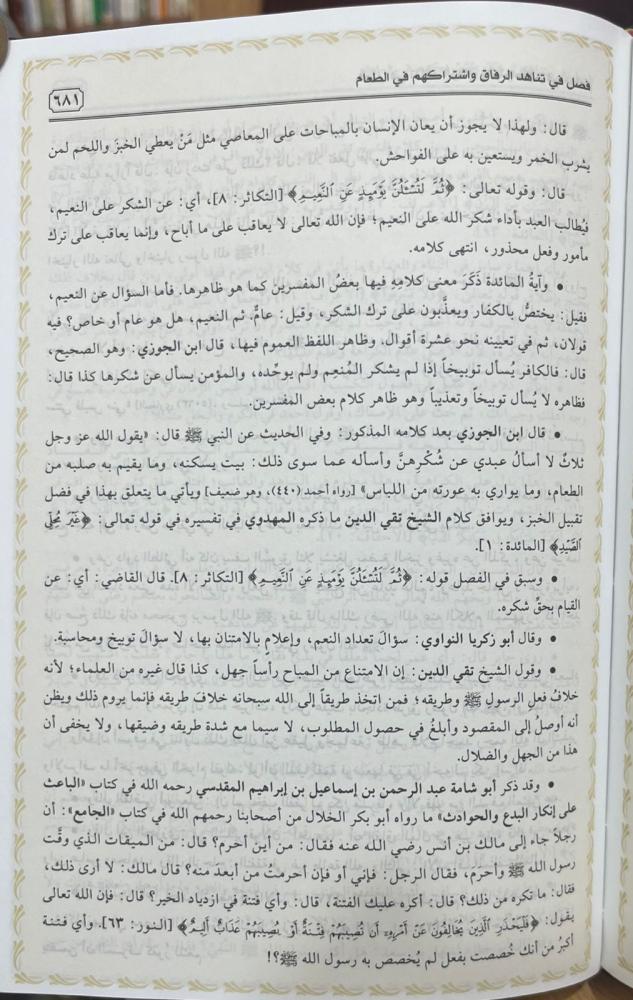 فصل في تناهد الرفاق واشتراكهم في الطعام
٦٨١
قال: ولهذا لا يجوز أن يعان الإنسان بالمباحات على المعاصي مثل مَنْ يعطي الخبزَ واللحم لمن
يشرب الخمر ويستعين به على الفواحش.
قال: وقوله تعالى: ﴿ثُمَّ لَتُسْـَٔلُنَّ يَوْمَئِذٍ عَنِ النَّعِيمِ﴾ [التكاثر: ٨]، أي: عن الشكر على النعيم،
فيُطالب العبد بأداء شكر الله على النعيم؛ فإن الله تعالى لا يعاقب على ما أباح، وإنما يعاقب على ترك
مأمور وفعل محذور، انتهى كلامه.
• وآيةُ المائدة ذَكَرَ معنى كلامِهِ فيها بعضُ المفسرين كما هو ظاهرها. فأما السؤال عن النعيم،
فقيل: يختصُّ بالكفار ويعذَّبون على ترك الشكر، وقيل: عامٌّ. ثم النعيم، هل هو عام أو خاص؟ فيه
قولان، ثم في تعيينه نحو عشرة أقوال. وظاهر اللفظ العموم فيها، قال ابن الجوزي: وهو الصحيح،
قال: فالكافر يُسأل توبيخاً إذا لم يشكر المُنعِم ولم يوحِّده، والمؤمن يسأل عن شكرها كذا قال:
فظاهره لا يُسأل توبيخاً وتعذيباً وهو ظاهر كلام بعض المفسرين.
• قال ابن الجوزي بعد كلامه المذكور: وفي الحديث عن النبي ﷺ قال: «يقول الله عز وجل
ثلاثٌ لا أسألُ عبدي عن شُكْرِهنَّ وأسأله عما سوى ذلك: بيت يسكنه، وما يقيم به صلبه من
الطعام، وما يواري به عورته من اللباس» [رواه أحمد (٤٤٠)، وهو ضعيف] ويأتي ما يتعلق بهذا في فضل
تقبيل الخبز، ويوافق كلام الشيخ تقي الدين ما ذكره المهدوي في تفسيره في قوله تعالى: ﴿غَيْرَ مُحِلِّى
الصَّيْدِ﴾ [المائدة: ١].
• وسبق في الفصل قوله: ﴿ثُمَّ لَتُسْـَٔلُنَّ يَوْمَئِذٍ عَنِ النَّعِيمِ﴾ [التكاثر: ٨]. قال القاضي: أي: عن
القيام بحقِّ شكره.
• وقال أبو زكريا النواوي: سؤالَ تعداد النعم، وإعلامٍ بالامتنان بها، لا سؤالَ توبيخ ومحاسبة.
• وقول الشيخ تقي الدين: إن الامتناع من المباح رأساً جهل، كذا قال غيره من العلماء؛ لأنه
خلافُ فعلِ الرسولِ ﷺ وطريقه؛ فمن اتخذ طريقاً إلى الله سبحانه خلافَ طريقه فإنما يروم ذلك ويظن
أنه أوصلُ إلى المقصود وأبلغُ في حصول المطلوب، لا سيما مع شدة طريقه وضيقها، ولا يخفى أن
هذا من الجهل والضلال.
• وقد ذكر أبو شامة عبد الرحمن بن إسماعيل بن إبراهيم المقدسي رحمه الله في كتاب «الباعث
على إنكار البدع والحوادث» ما رواه أبو بكر الخلال من أصحابنا رحمهم الله في كتاب «الجامع»: أن
رجلاً جاء إلى مالك بن أنس رضي الله عنه فقال: من أين أحرم؟ قال: من الميقات الذي وقَّت
رسول الله ﷺ وأحرم، فقال الرجل: فإني أو فإن أحرمتُ من أبعدَ منه؟ قال مالك: لا أرى ذلك،
فقال: ما تكره من ذلك؟ قال: أكره عليك الفتنة، قال: وأي فتنة في ازدياد الخير؟ قال: فإن الله تعالى
يقول: ﴿فَلْيَحْذَرِ الَّذِينَ يُخَالِفُونَ عَنْ أَمْرِهِۦٓ أَن تُصِيبَهُمْ فِتْنَةٌ أَوْ يُصِيبَهُمْ عَذَابٌ أَلِيمٌ﴾ [النور: ٦٣]. وأي فتنة
أكبرُ من أنك خُصصت بفعل لم يُخصص به رسول الله ﷺ؟!